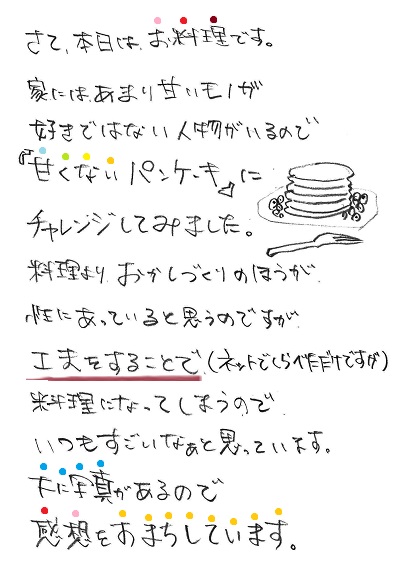 さて、本日は、お料理です。
家には、あまり甘いモノが
好きではない人物がいるので
『甘くないパンケーキ』に
チャレンジしてみました。
料理より、おかしづくりのほうが、
性にあっていると思うのですが、
工夫をすることで、(ネットでくらべただけですが)
料理になってしまうので、
いつもすごいなぁと思っています。
下に写真があるので
感想をおまちしています。